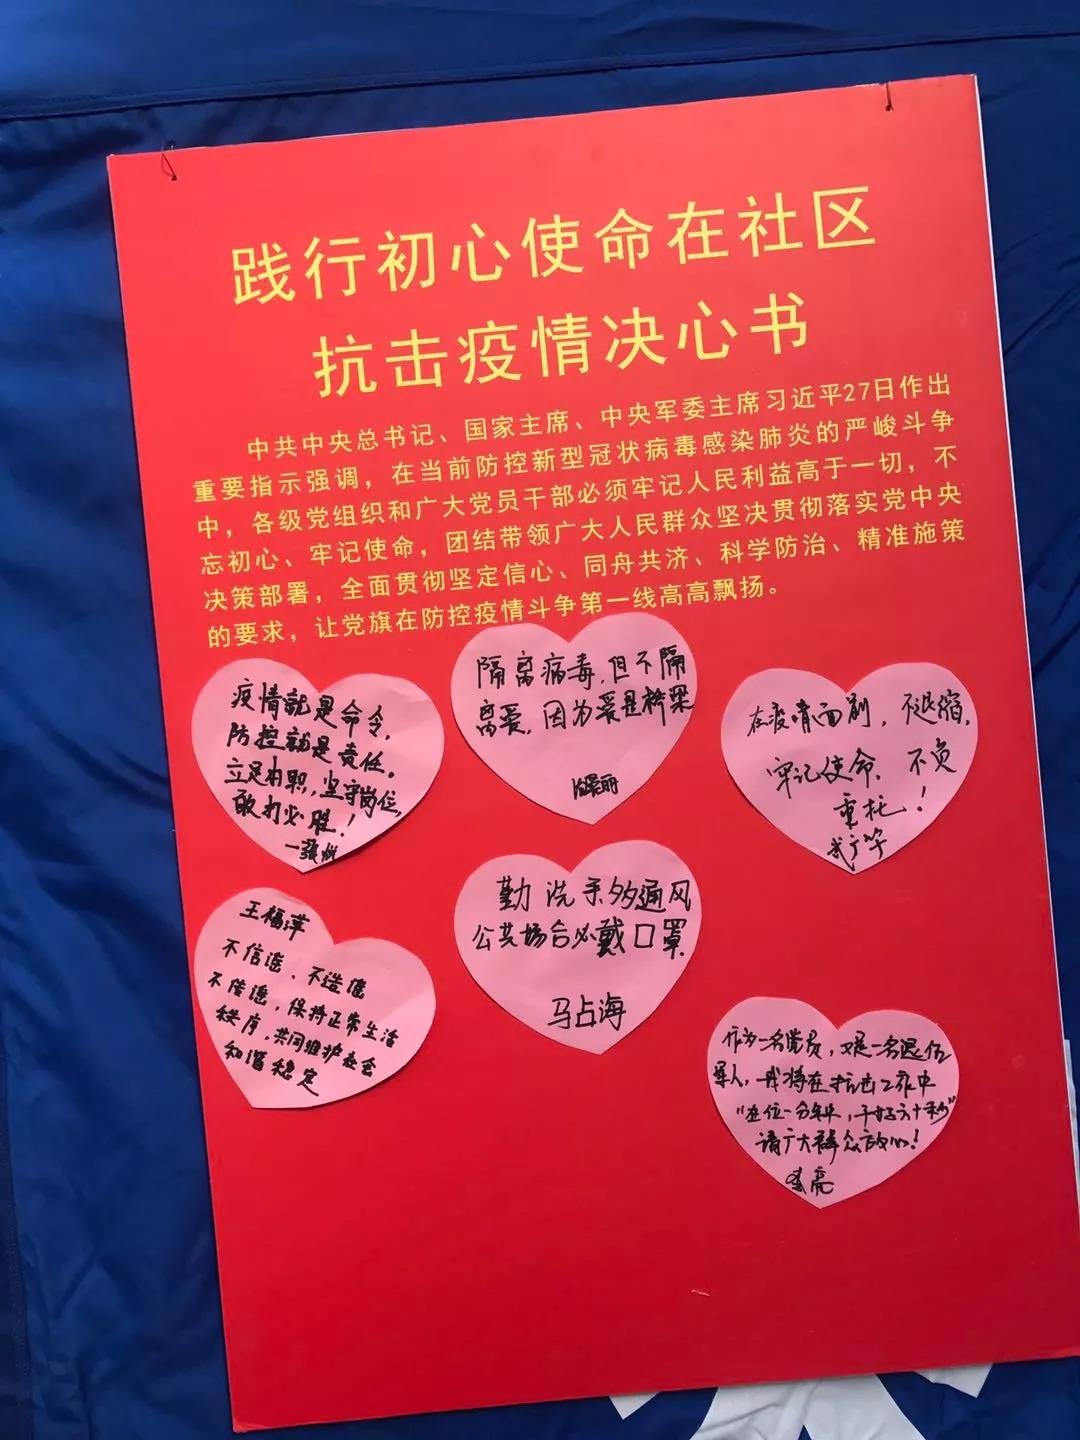 践行初心使命在社区
抗击疫情决心书
中共中央总书记、国家主席、中央军委主席习近平27日作出
重要指示强调，在当前防控新型冠状病毒感染肺炎的严峻斗争
中，各级党组织和广大党员干部必须牢记人民利益高于一切，不
忘初心、牢记使命，团结带领广大人民群众坚决贯彻落实党中央
决策部署，全面贯彻坚定信心、同舟共济、科学防治、精准施策
的要求，让党旗在防控疫情斗争第一线高高飘扬。
疫情就是命令，
防控就是责任。
立足本职，坚守岗位，
敢打必胜！
一张
隔离病毒，但不隔
离爱，因为爱是桥梁
在疫情面前，不退缩，
牢记使命、不负
重托！
武广华
王福萍
不信谣、不造谣
不传谣，保持正常生活
秩序，共同维护社会
和谐稳定
勤洗手多通风
公共场合必戴口罩
马占海
作为一名党员，又是一名退伍
军人，我将在抗击工作中
“在位一分钟，干好六十秒”
请广大群众放心！
李亮